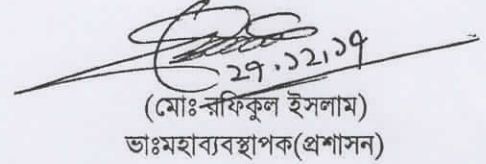 ২৭.১২.১৭
(মোঃ রফিকুল ইসলাম)
ভাঃমহাব্যবস্থাপক(প্রশাসন)